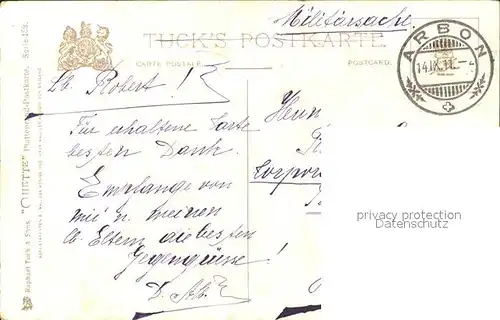 Militärsache.
TUCK'S POSTKARTE
CARTE POSTALE
POSTCARD.
ARBON
14.IX.11.
Lb. Robert!
Für erhaltene Karte
besten Dank.
Empfange von
mir u. meinen
lb. Eltern die besten
Gegengrüsse!
Herrn
Corpor
privacy protection
Datenschutz
Raphael Tuck & Sons "OILETTE" Postkarte. Serie